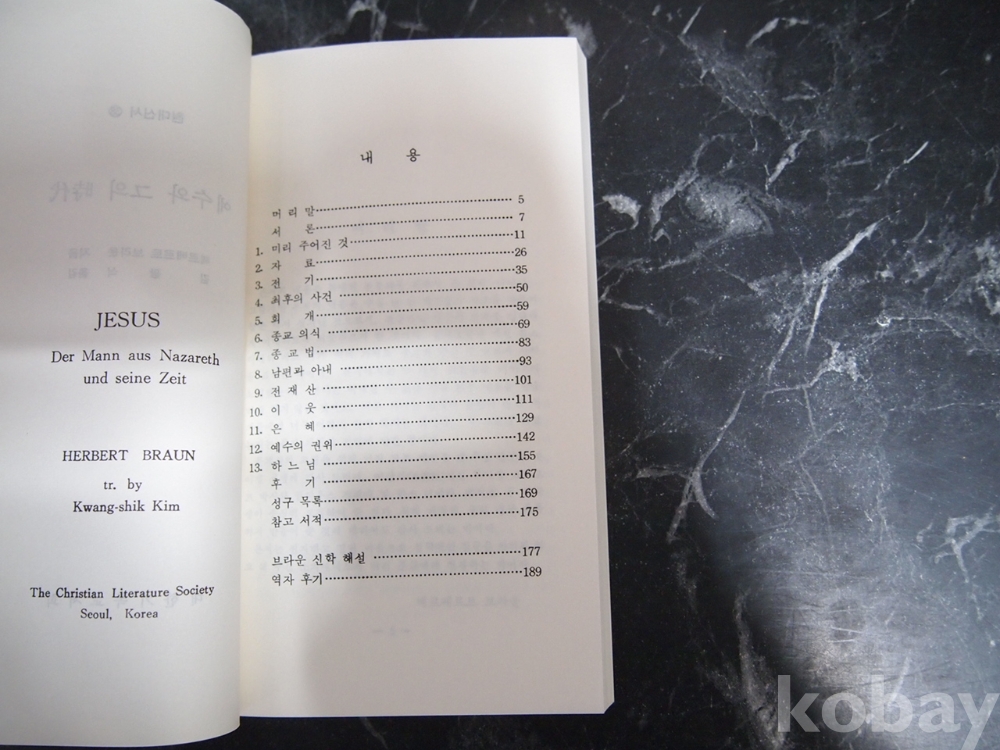 JESUS
Der Mann aus Nazareth
und seine Zeit
HERBERT BRAUN
tr. by
Kwang-shik Kim
The Christian Literature Society
Seoul, Korea
내 용
머 리 말 5
서 론 7
1. 미리 주어진 것 11
2. 자 료 26
3. 전 기 35
4. 최후의 사건 50
5. 회 개 59
6. 종교 의식 69
7. 종 교 법 83
8. 남편과 아내 93
9. 전 재 산 101
10. 이 웃 111
11. 은 혜 129
12. 예수의 권위 142
13. 하 느 님 155
후 기 167
성구 목록 169
참고 서적 175
브라운 신학 해설 177
역자 후기 189
kobay